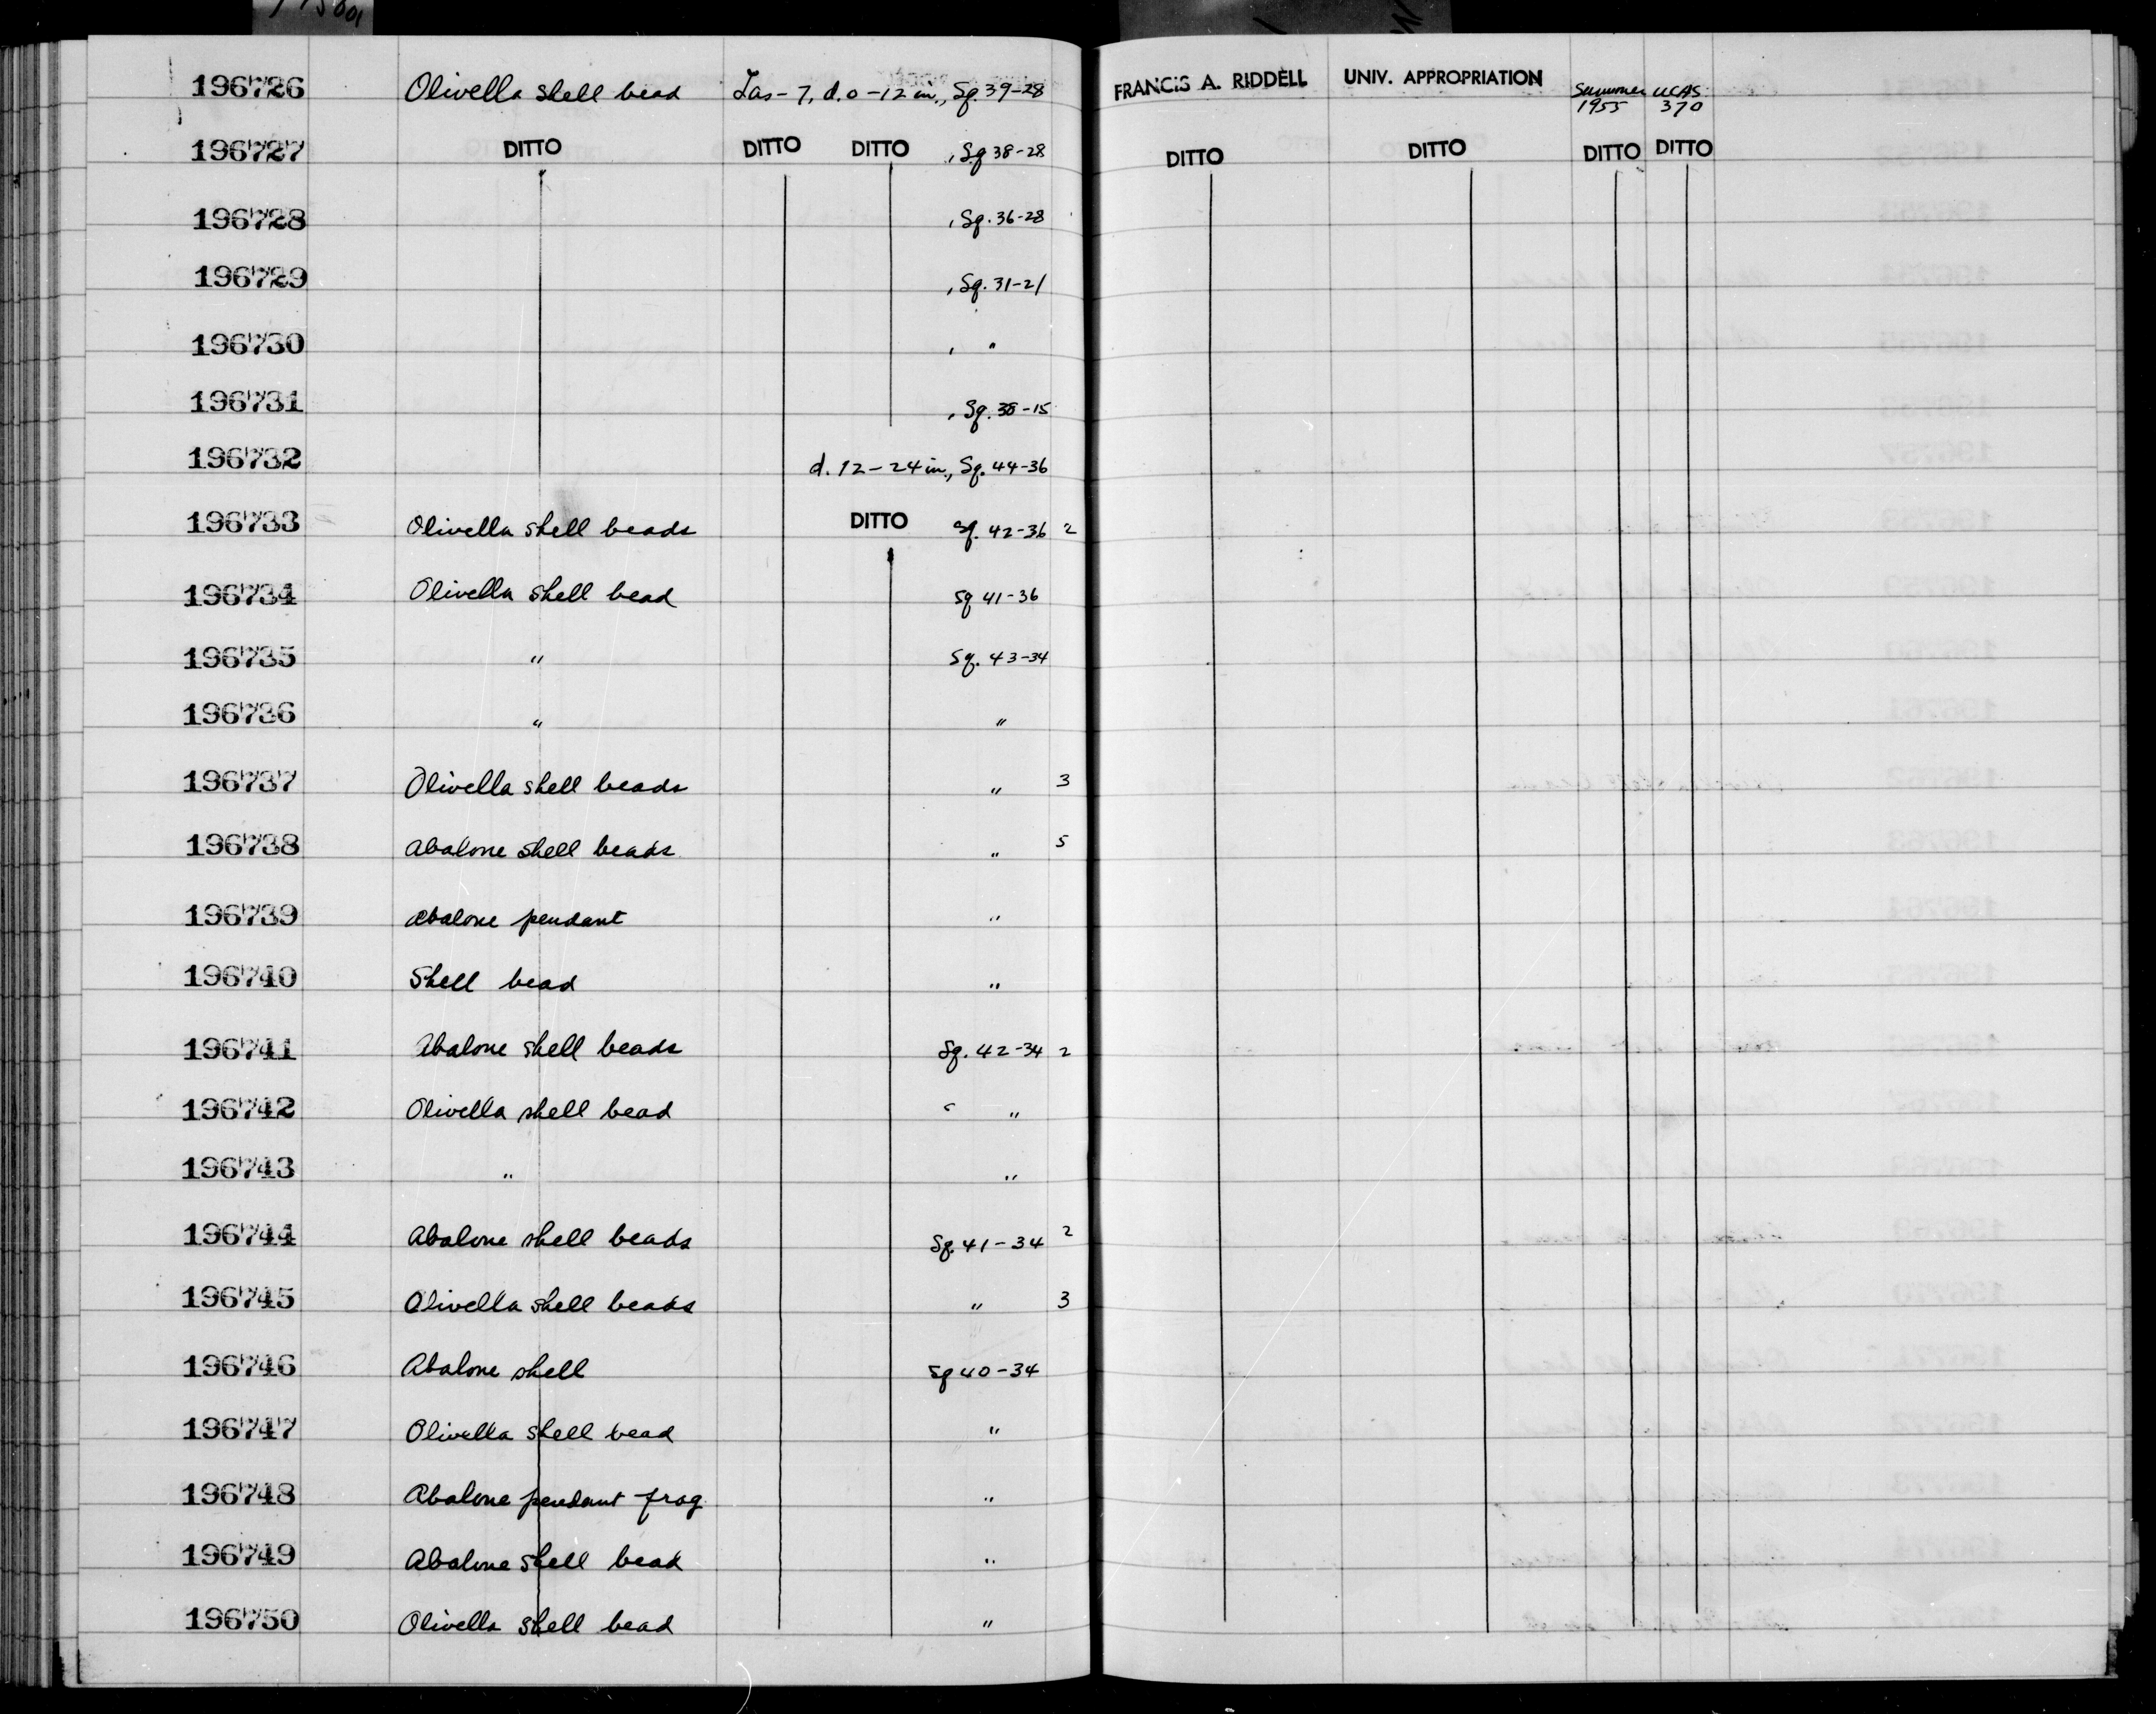 196726 Olivella shell bead Las-7, d. 0-12 in., Sq. 39-28 FRANCIS A. RIDDELL UNIV. APPROPRIATION Summer 1955 UCAS 370
196727 DITTO DITTO DITTO , Sq 38-28 DITTO DITTO DITTO DITTO
196728 , Sq. 36-28
196729 , Sq. 31-21
196730 , "
196731 , Sq. 38-15
196732 d. 12-24 in., Sq. 44-36
196733 Olivella shell beads DITTO Sq. 42-36 2
196734 Olivella shell bead Sq 41-36
196735 " Sq. 43-34
196736 " "
196737 Olivella shell beads " 3
196738 Abalone shell beads " 5
196739 Abalone pendant "
196740 Shell bead "
196741 Abalone shell beads Sq. 42-34 2
196742 Olivella shell bead "
196743 " "
196744 Abalone shell beads Sq. 41-34 2
196745 Olivella shell beads " 3
196746 Abalone shell Sq 40-34
196747 Olivella shell bead "
196748 Abalone pendant frag. "
196749 Abalone shell bead "
196750 Olivella shell bead "